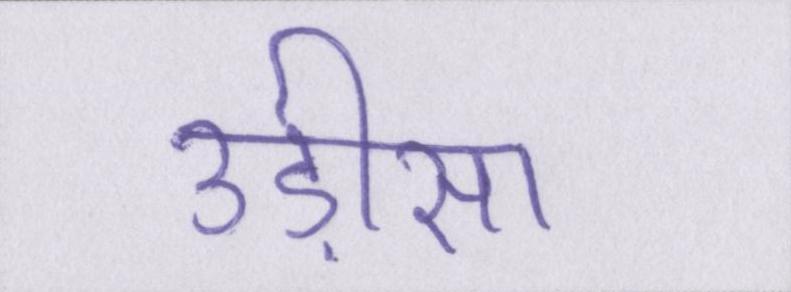 उड़ीसा